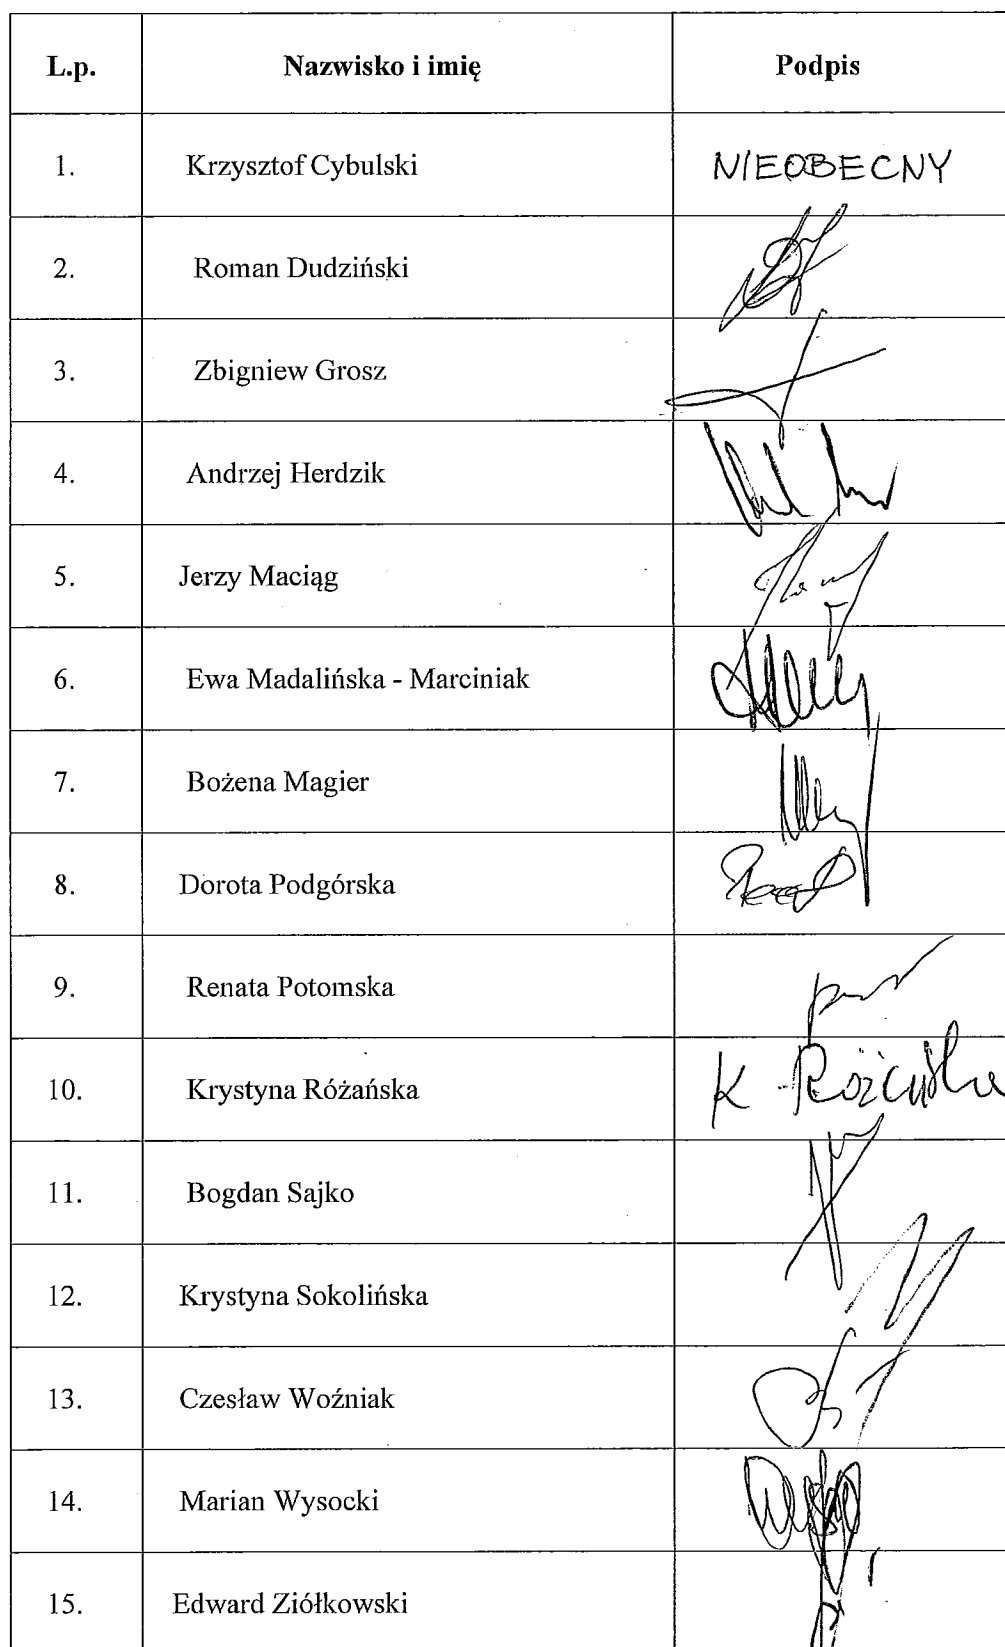 L.p. Nazwisko i imię Podpis
1. Krzysztof Cybulski NIEOBECNY
2. Roman Dudziński
3. Zbigniew Grosz
4. Andrzej Herdzik
5. Jerzy Maciąg
6. Ewa Madalińska - Marciniak
7. Bożena Magier
8. Dorota Podgórska
9. Renata Potomska
10. Krystyna Różańska K Różańska
11. Bogdan Sajko
12. Krystyna Sokolińska
13. Czesław Woźniak
14. Marian Wysocki
15. Edward Ziółkowski